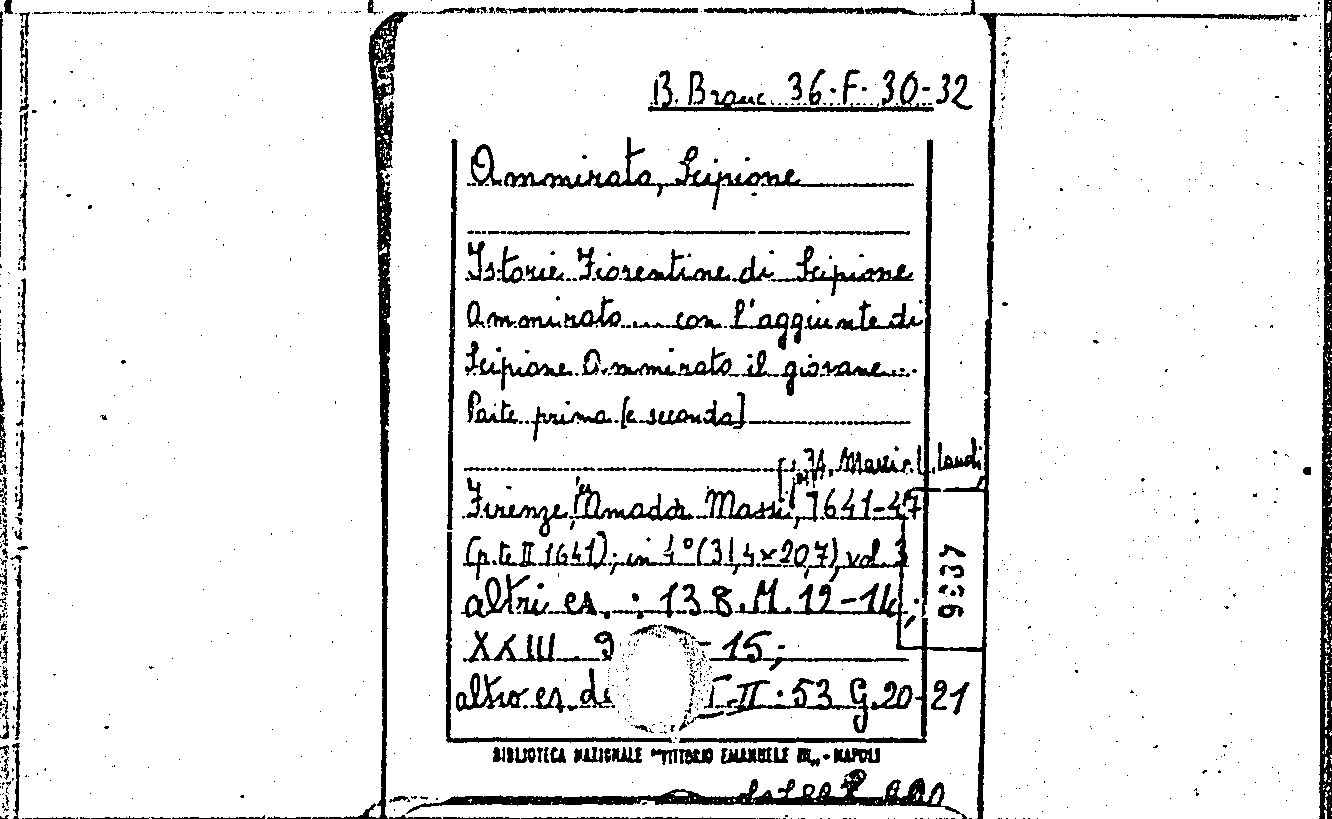 B. Branc. 36.F.30-32
Ammirato, Scipione
Istorie Fiorentine di Scipione
Ammirato... con l'aggiunte di
Scipione Ammirato il giovane...
Parte prima [e seconda]
Massi e L. Landi
Firenze, Amador Massi, 1641-47
(p.te II 1641); in 4° (31,4×20,7), vol. 3
9337
altri es. : 138.M.12-14;
XXIII 9 - 15;
altro es. di I-II : 53 G.20-21
BIBLIOTECA NAZIONALE "VITTORIO EMANUELE III" - NAPOLI